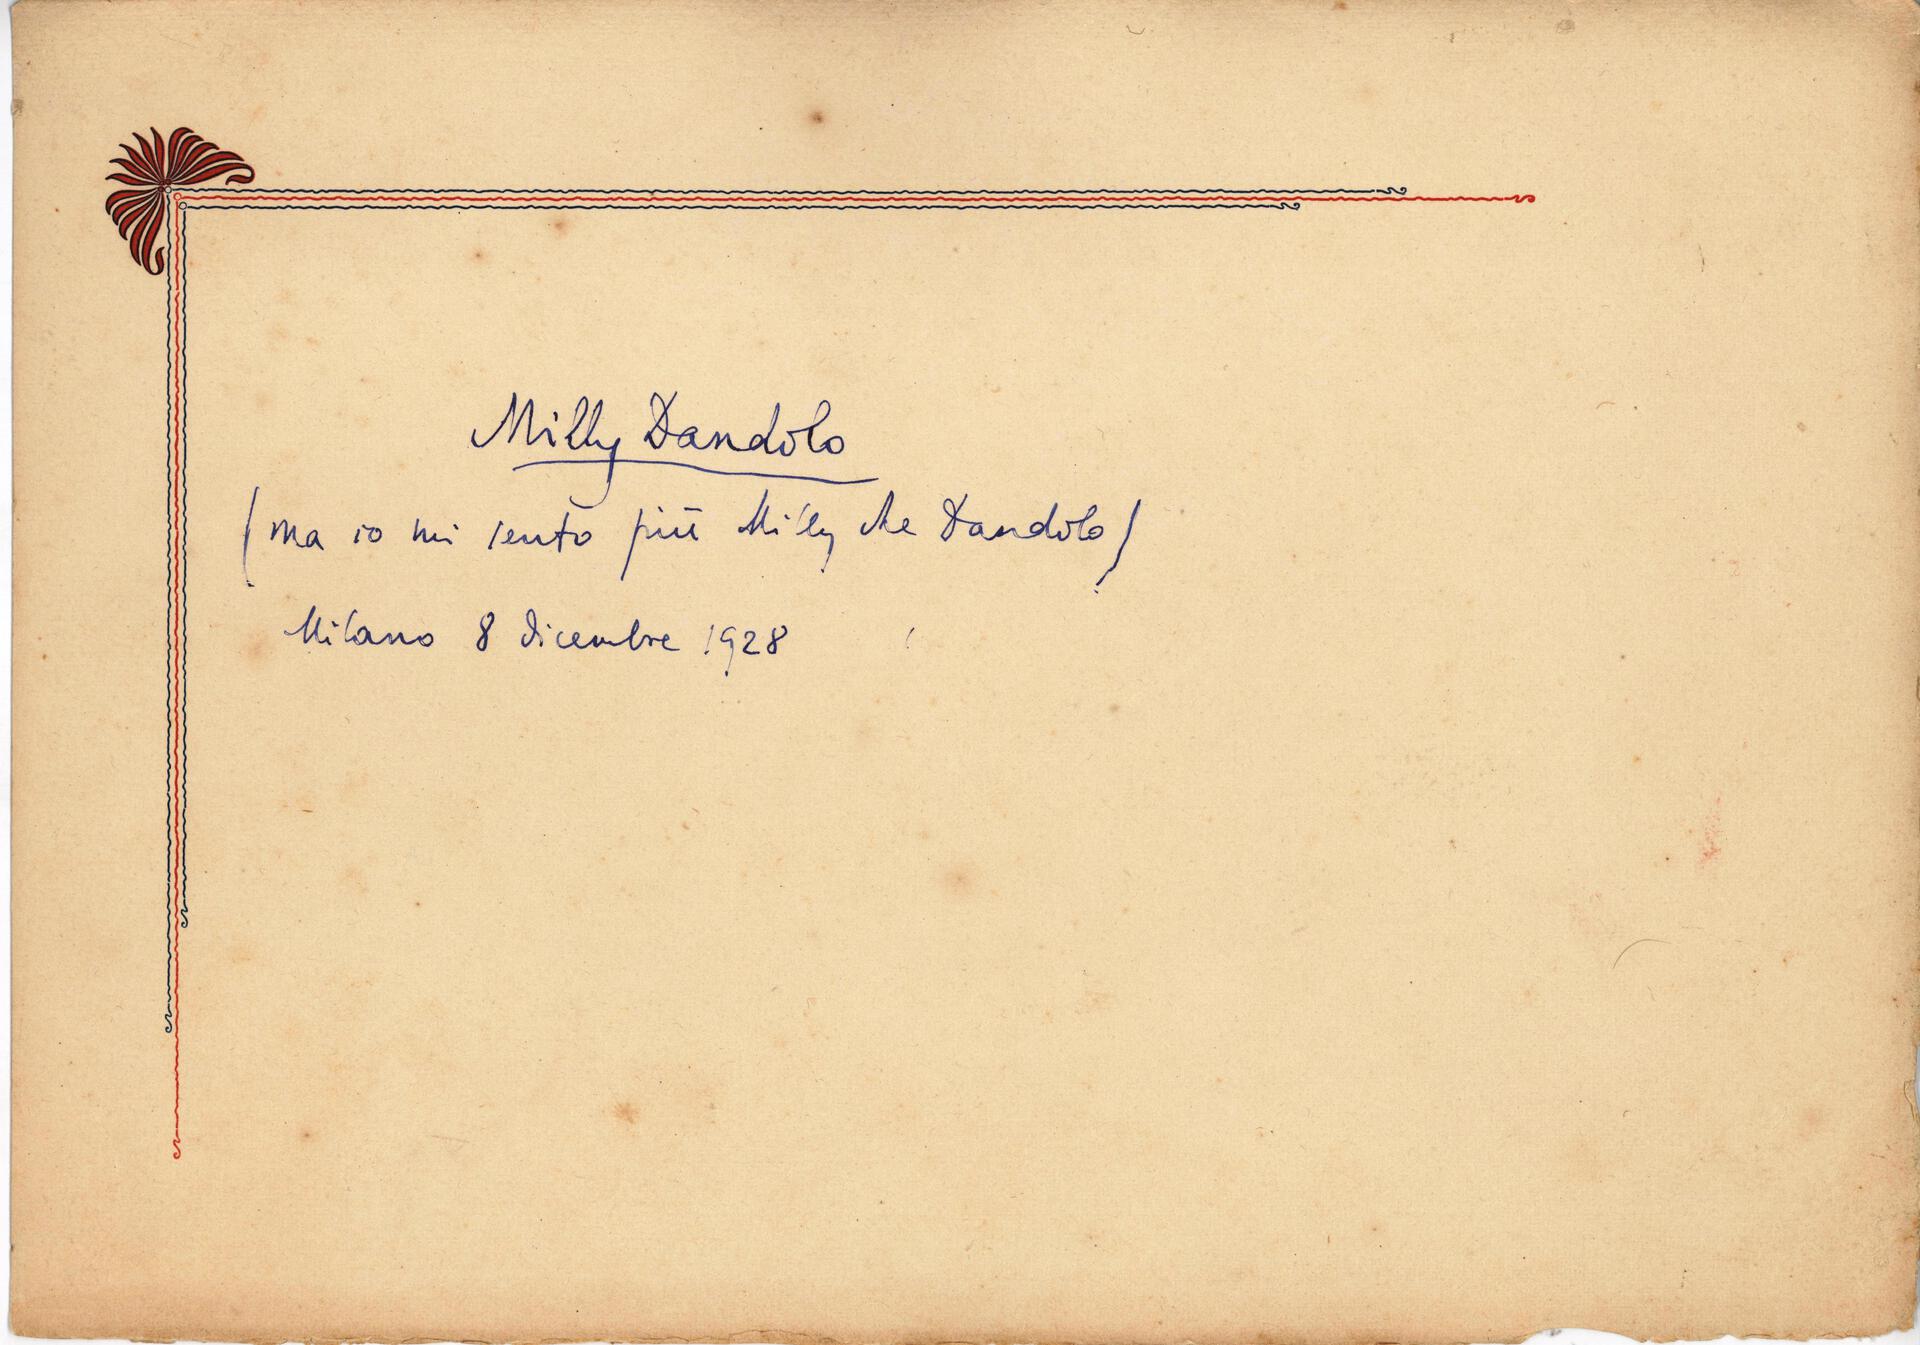 Milly Dandolo
(ma io mi sento più Milly che Dandolo)
Milano 8 dicembre 1928